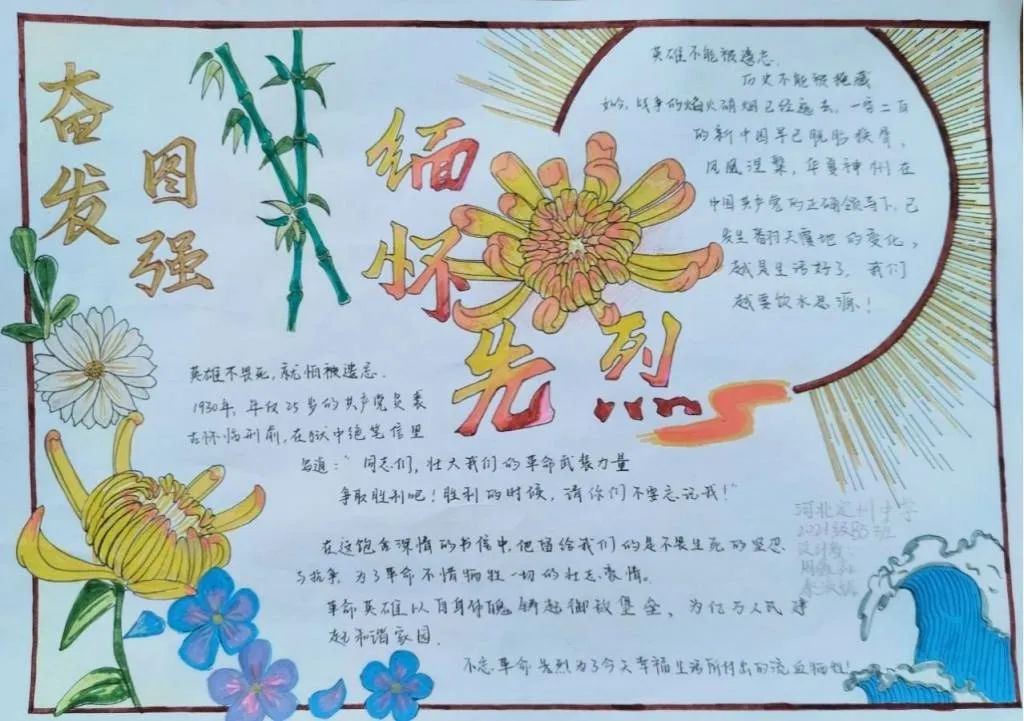 奋发
图强
缅怀
先烈
英雄不能被遗忘
历史不能被掩藏
如今,战争的焰火硝烟已经远去,一穷二白
的新中国早已脱胎换骨,
凤凰涅槃,华夏神州在
中国共产党的正确领导下,已
发生着翻天覆地的变化,
越是生活好了,我们
越要饮水思源!
英雄不畏死,就怕被遗忘.
1930年,年仅25岁的共产党员裘
古怀临刑前,在狱中绝笔信里
写道:"同志们,壮大我们的革命武装力量
争取胜利吧!胜利的时候,请你们不要忘记我!"
在这饱含深情的书信中,他留给我们的是不畏生死的坚忍
与抗争,为了革命不惜牺牲一切的壮志豪情。
革命英雄以自身体魄铸起御敌堡垒,为亿万人民建
起和谐家园.
不忘革命先烈为了今天幸福生活所付出的流血牺牲!
河北定州中学
2021级85班
设计者: